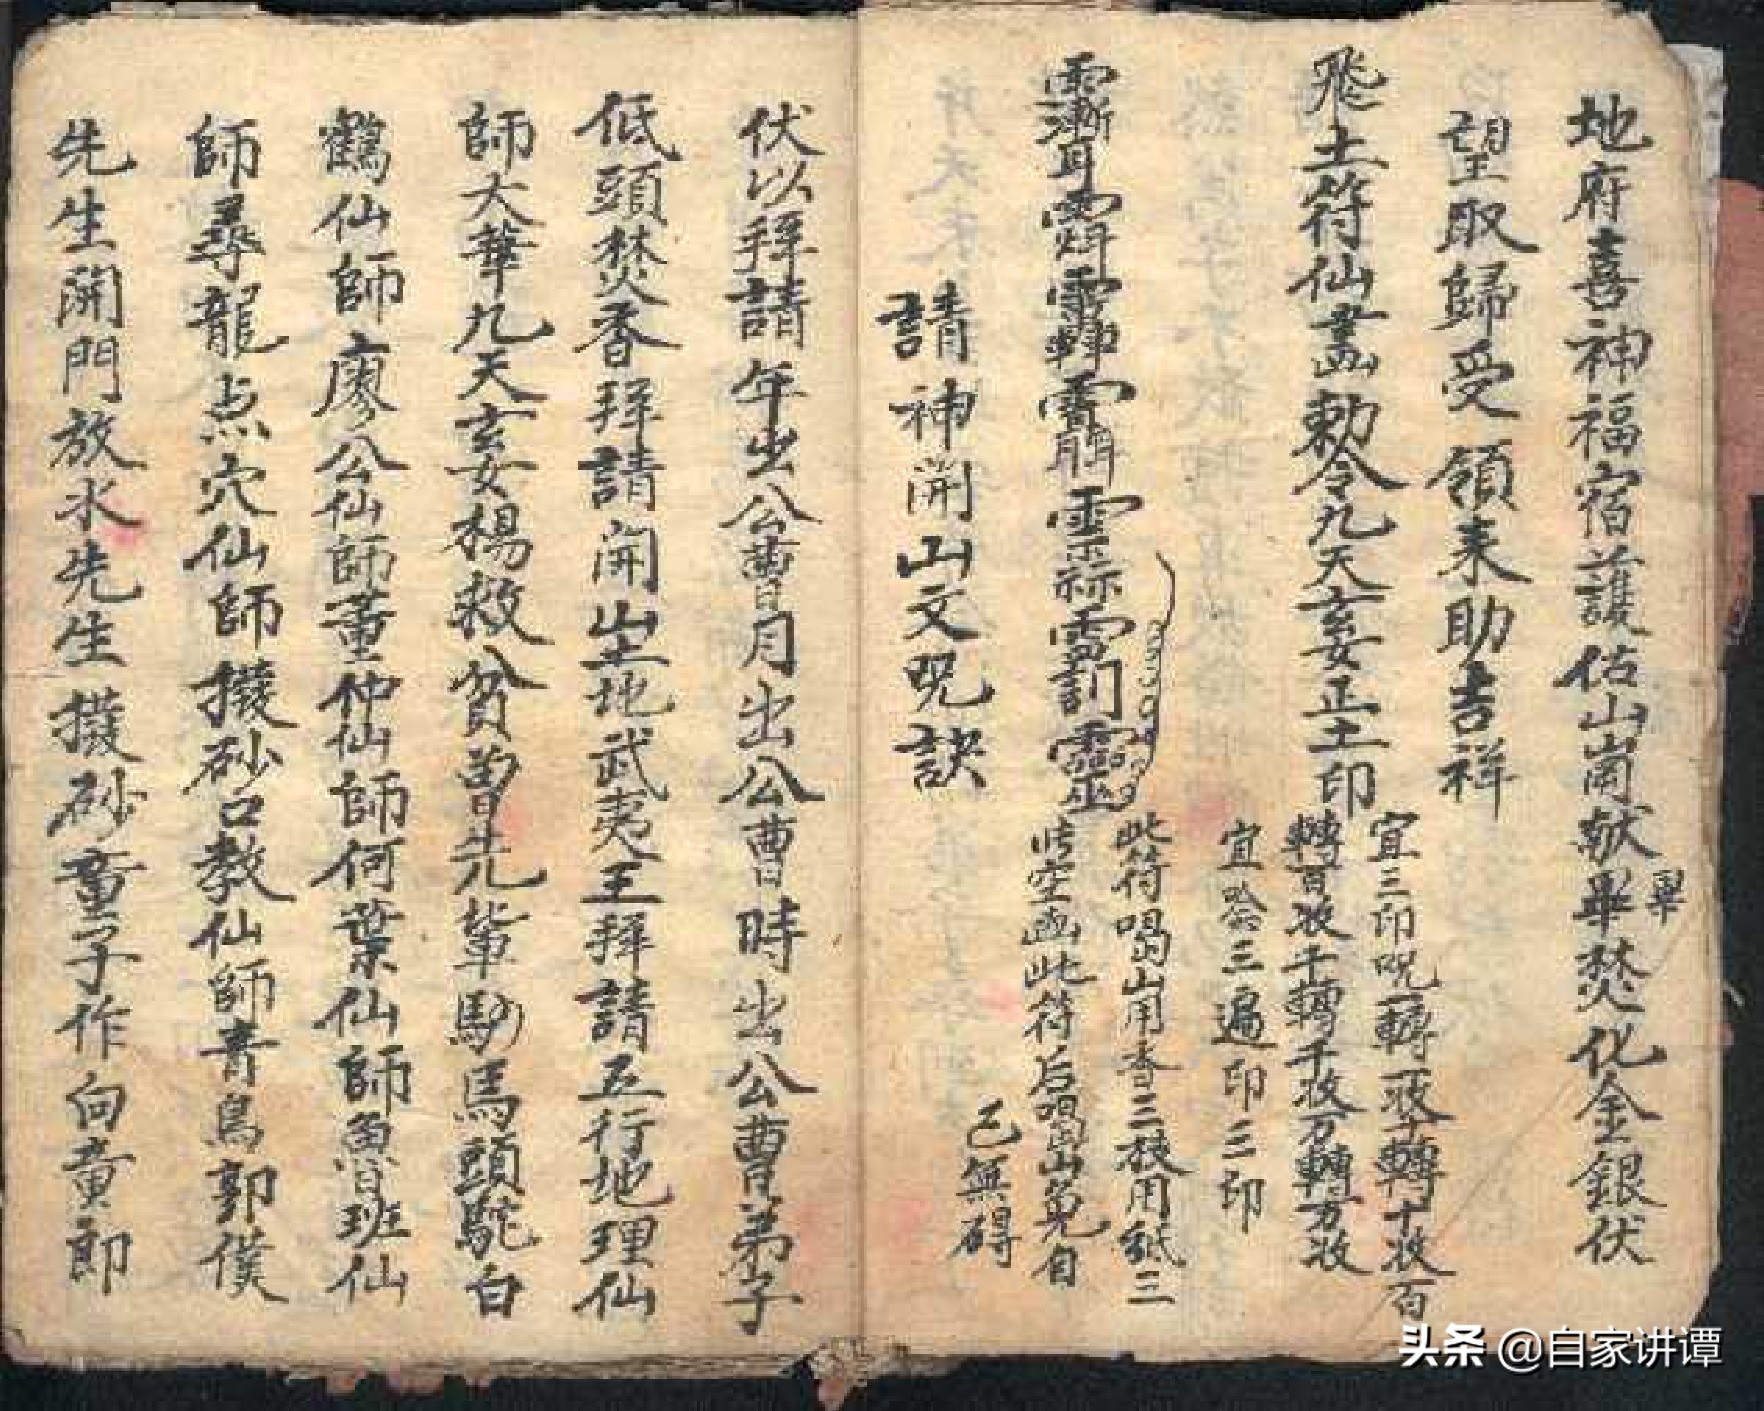 地府喜神福宿護佑山崗献畢焚化金銀伏
畢
望取歸受領来助吉祥
飛土符仙書畫勅令九天玄女正土印
宜三印咒一轉一收十轉十收百
轉百收千轉千收万轉万收
宜唸三遍印三印
此符喝山用香三枝用紙三
時空画此符后喝山免自
己無碍
請神開山文咒訣
伏以拜請年出公曹月出公曹時出公曹弟子
低頭焚香拜請開山土地武夷王拜請五行地理仙
師大華九天玄女楊救貧曾先輩馬頭駝白
鶴仙師廖公仙師董仲仙師何葉仙師魯班仙
師尋龍点穴仙師撥砂口教仙師青烏郭僕
先生開門放水先生撥砂童子作向童郎
头条 @自家讲谭